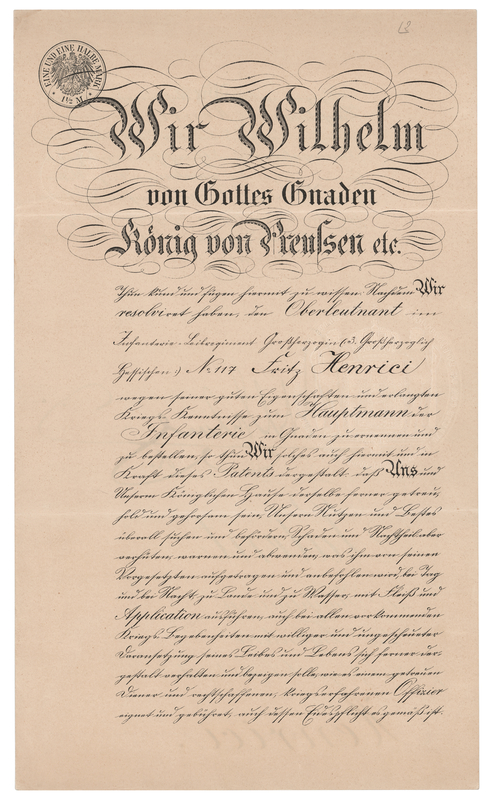 13
EINE UND EINE HALBE MARK
1½ M
Wir Wilhelm
von Gottes Gnaden
König von Preußen etc.
Thun kund und fügen hiermit zu wissen. Nachdem Wir
resolviret haben, den Oberleutnant im
Infanterie-Leibregiment Großherzogin (3. Großherzoglich
Hessischen) No. 117 Fritz Henrici
wegen seiner guten Eigenschaften und erlangten
Kriegs Kenntnisse zum Hauptmann der
Infanterie in Gnaden zu ernennen und
zu bestellen, so thun Wir solches auch hiermit und in
Kraft dieses Patents dergestalt daß Uns und
Unserm Königlichen Hause derselbe ferner getreu,
hold und gehorsam sein, Unsern Nutzen und Bestes
überall suchen und befördern, Schaden und Nachtheil aber
verhüten, warnen und abwenden, was ihm von seinen
Vorgesetzten aufgetragen und anbefohlen wird, bei Tag
und bei Nacht, zu Lande und zu Wasser, mit Fleiß und
Application ausführen, auch bei allen vorkommenden
Kriegs Begebenheiten mit williger und ungescheuter
Daransetzung seines Leibes und Lebens sich ferner der-
gestalt verhalten und bezeigen solle, wie es einem getreuen
Diener und rechtschaffenen, kriegserfahrenen Offizier
eignet und gebühret, auch dessen Eidespflicht es gemäß ist.